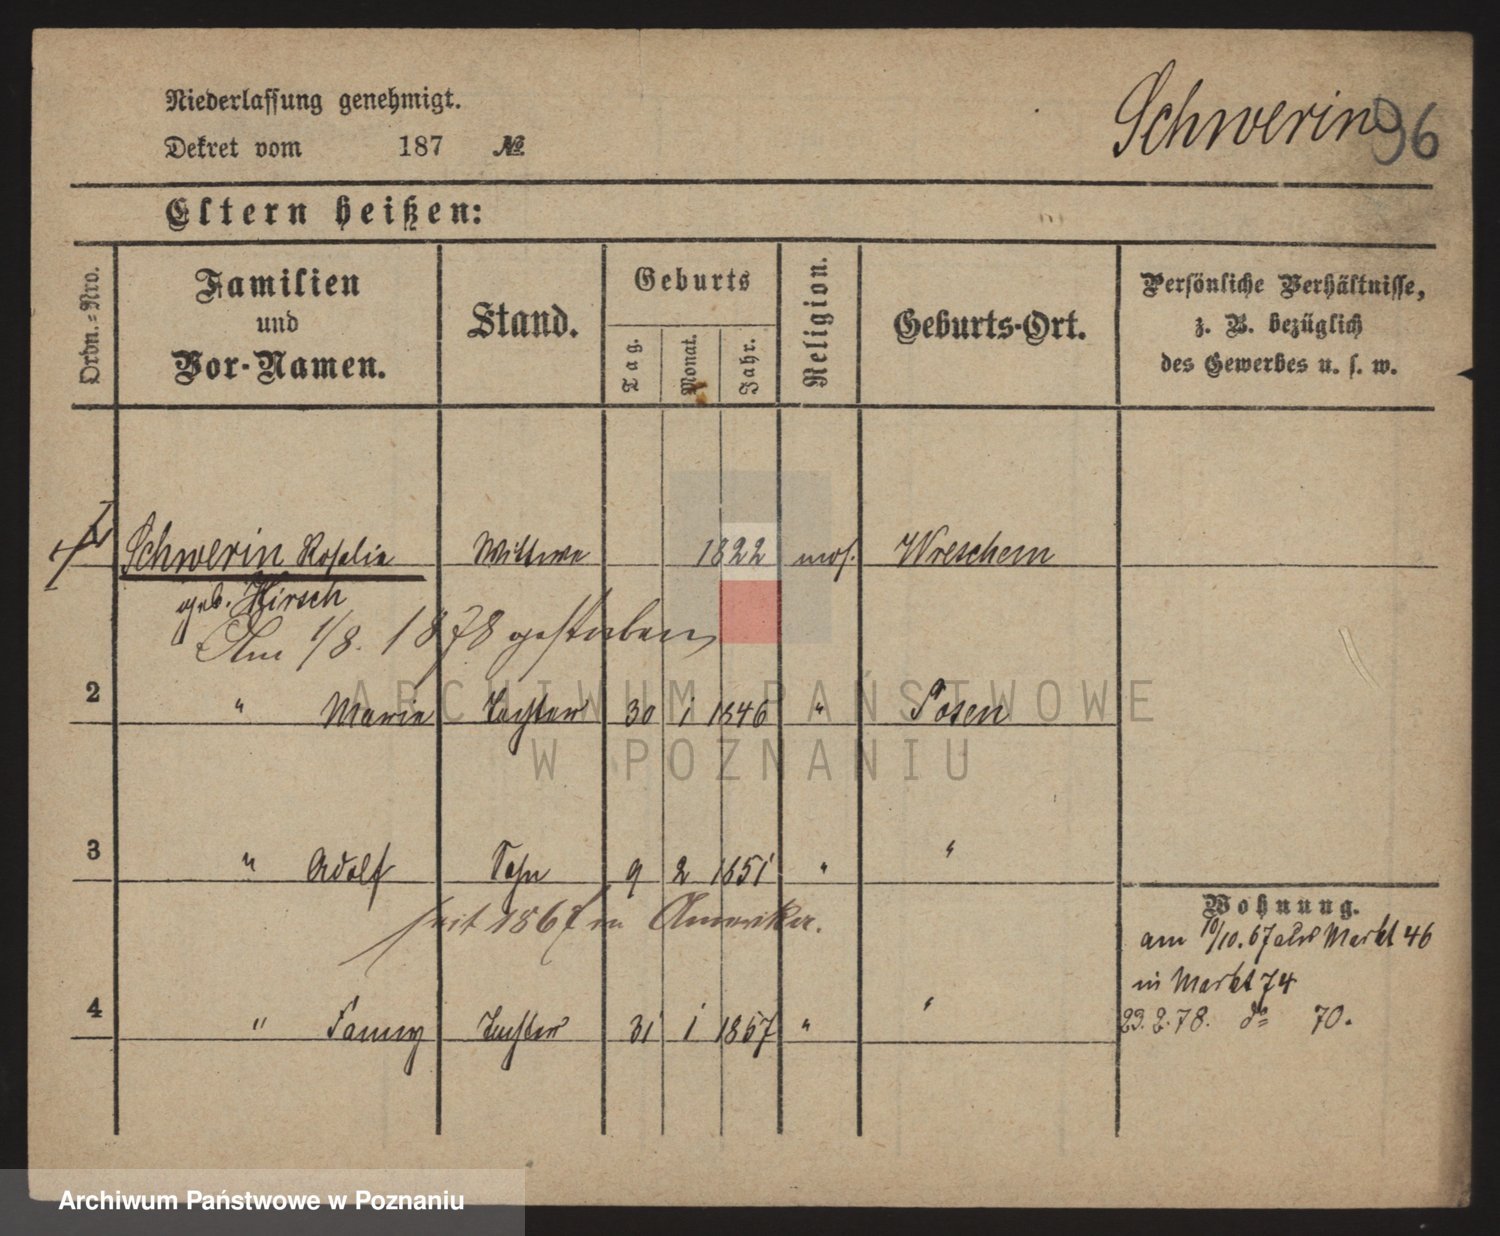 Niederlassung genehmigt.
Schwerin 96
Dekret vom 187 №
Eltern heißen:
Ordn.=Nro.
Familien und Vor-Namen.
Stand.
Geburts
Tag.
Monat.
Jahr.
Religion.
Geburts-Ort.
Persönliche Verhältnisse,
z. B. bezüglich
des Gewerbes u. s. w.
Schwerin Rosalie Wittwe 1822 mos. Wreschen
geb. Hirsch
Am 1/8. 1878 gestorben
2 " Marie Tochter 30 1 1846 " Posen
3 " Adolf Sohn 9 2 1851 " "
seit 1867 in Amerika.
Wohnung.
am 10/10. 67 aus Markt 46
in Markt 74
23. 2. 78. do 70.
4 " Fanny Tochter 31 1 1857 " "
ARCHIWUM PAŃSTWOWE
W POZNANIU
Archiwum Państwowe w Poznaniu